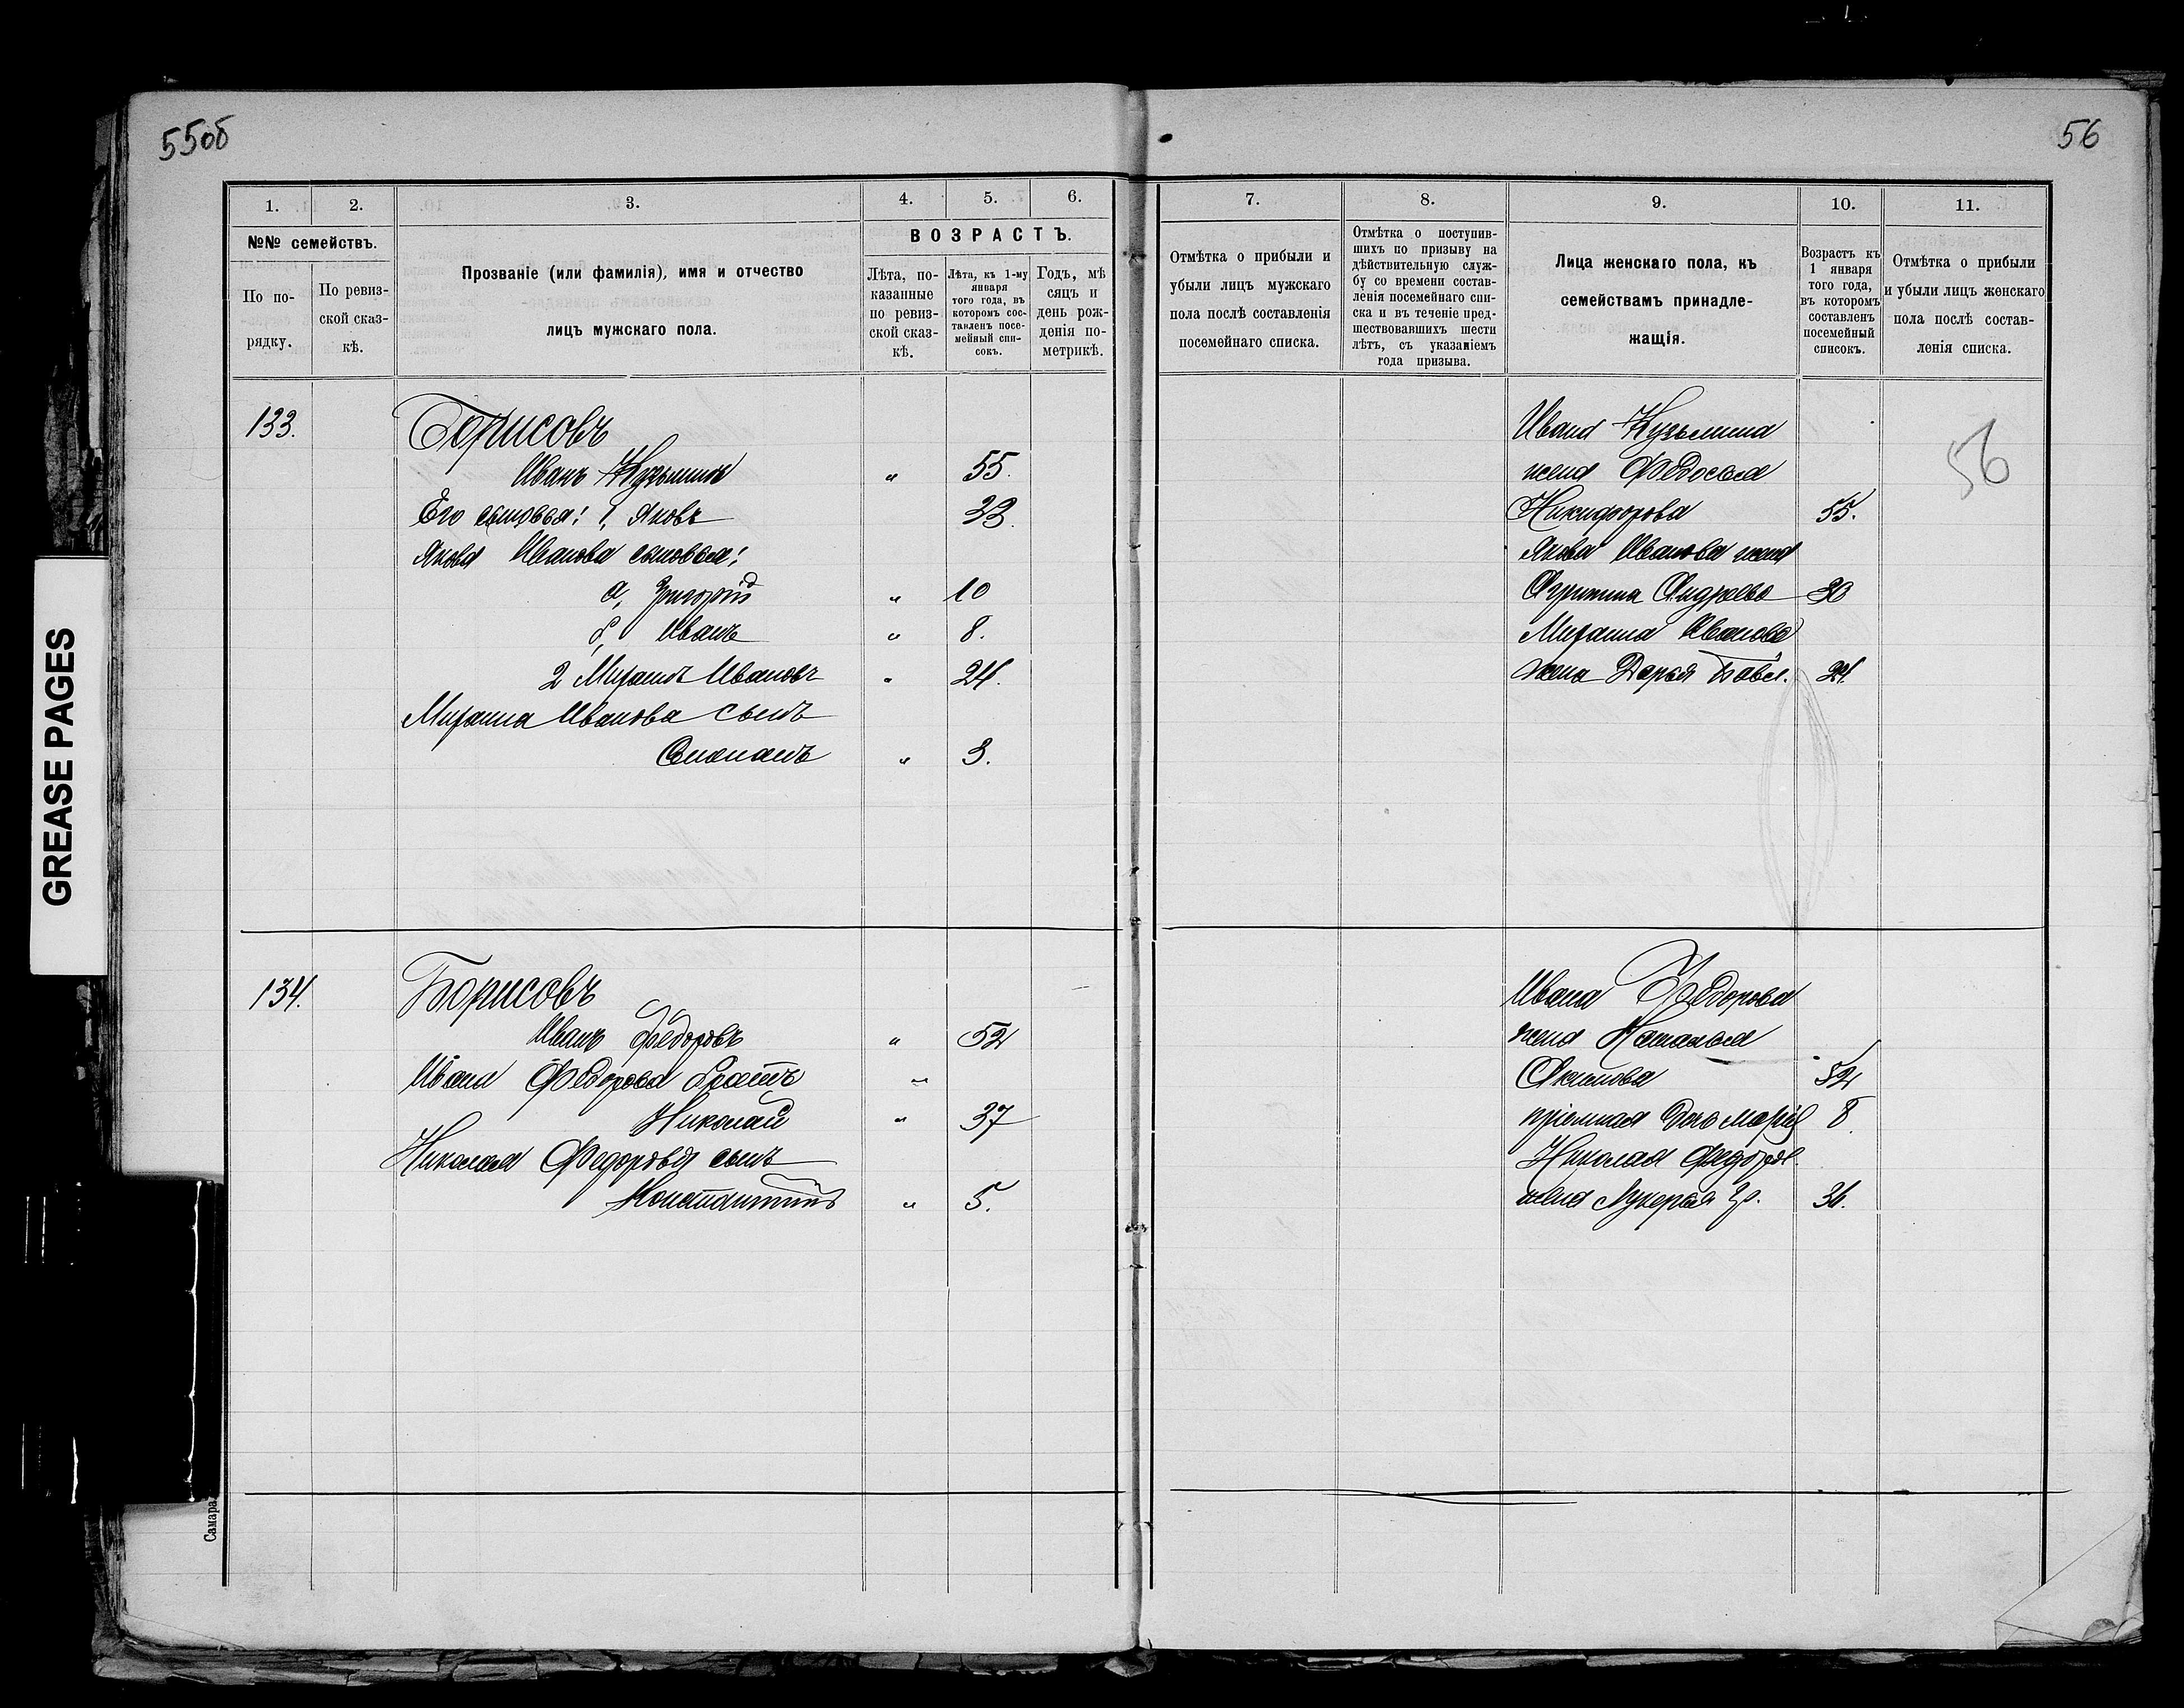 55об
56
1.
2.
3.
4.
5.
6.
7.
8.
9.
10.
11.
№№ семействъ.
По по-
рядку.
По ревиз-
ской сказ-
кѣ.
Прозваніе (или фамилія), имя и отчество
лицъ мужскаго пола.
ВОЗРАСТЪ.
Лѣта, по-
казанные
по ревиз-
ской сказ-
кѣ.
Лѣта, къ 1-му
января
того года, въ
которомъ сос-
тавленъ посе-
мейный спи-
сокъ.
Годъ, мѣ
сяцъ и
день рож-
денія по-
метрикѣ.
Отмѣтка о прибыли и
убыли лицъ мужскаго
пола послѣ составленія
посемейнаго списка.
Отмѣтка о поступив-
шихъ по призыву на
дѣйствительную служ-
бу со времени состав-
ленія посемейнаго спи-
ска и въ теченіе пред-
шествовавшихъ шести
лѣтъ, съ указаніемъ
года призыва.
Лица женскаго пола, къ
семействамъ принадле-
жащія.
Возрастъ къ
1 января
того года,
въ которомъ
составленъ
посемейный
списокъ.
Отмѣтка о прибыли
и убыли лицъ женскаго
пола послѣ состав-
ленія списка.
133.
Борисовъ
Иванъ Кузьминъ " 55.
Его сыновья: 1, Яковъ 33.
Якова Иванова сыновья:
а, Григорій " 10
б, Иванъ " 8.
2 Миронъ Ивановъ " 24.
Мирона Иванова сынъ
Степанъ " 3.
Ивана Кузьмина
жена Федосья
Никифорова 55.
Якова Иванова жена
Агрипина Андреева 30
Мирона Иванова
жена Дарья Павл. 24.
56
134.
Борисовъ
Иванъ Федоровъ " 52
Ивана Федорова братъ "
Николай " 37
Николая Федорова сынъ
Константинъ " 5.
Ивана Федорова
жена Наталья
Акимова 52
пріемная дочь Марія 8.
Николая Федоров.
жена Лукерья Гр. 36.
GREASE PAGES
Самара